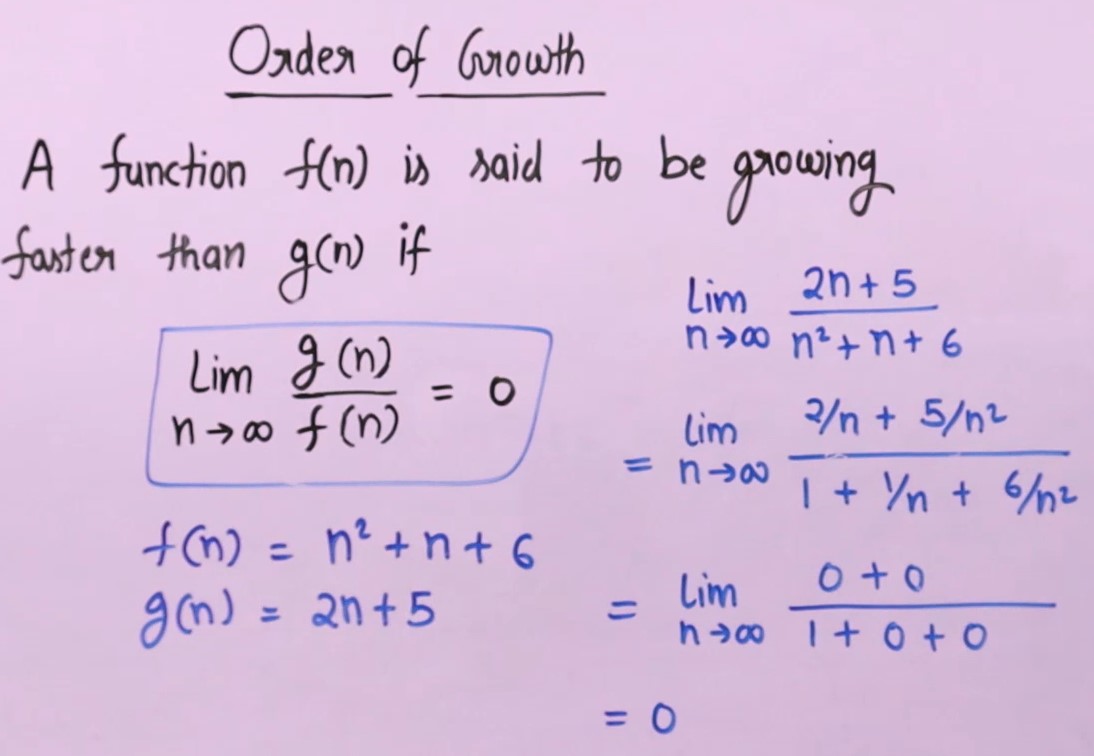 Order of Growth
A function f(n) is said to be growing
faster than g(n) if
Lim n→∞ g(n)/f(n) = 0
f(n) = n² + n + 6
g(n) = 2n + 5
Lim n→∞ (2n + 5)/(n² + n + 6)
= lim n→∞ (2/n + 5/n²)/(1 + 1/n + 6/n²)
= Lim n→∞ (0 + 0)/(1 + 0 + 0)
= 0